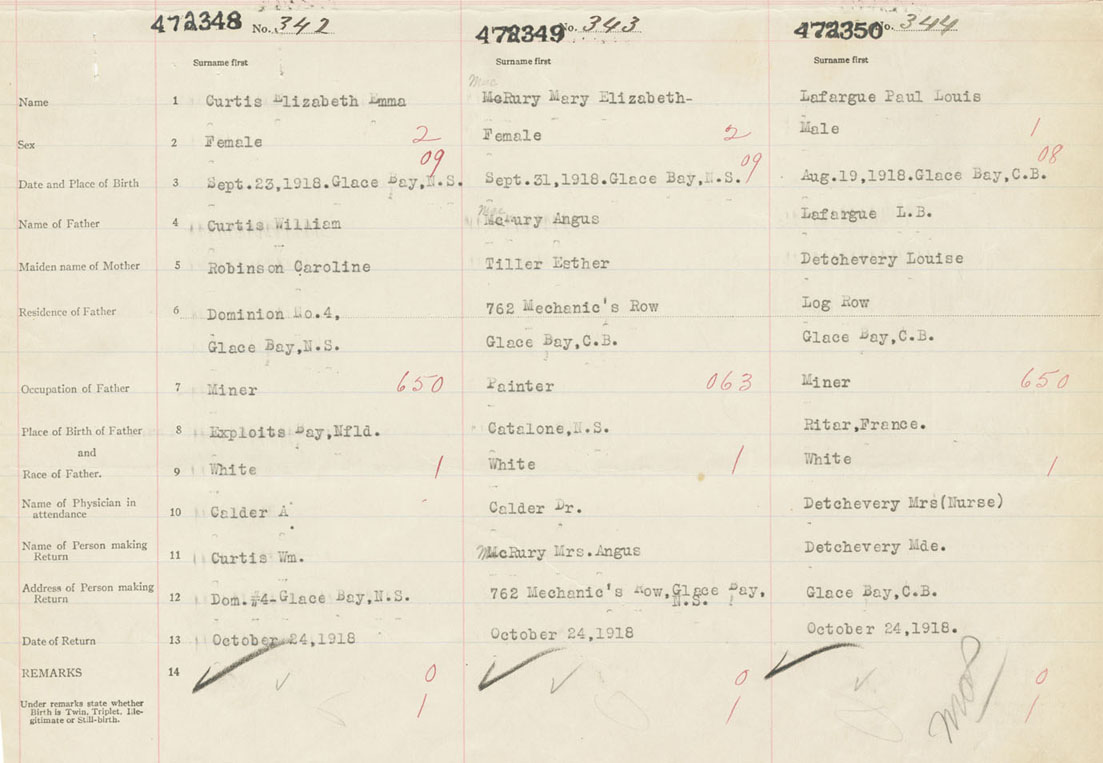 472348 No. 342 472349 No. 343 472350 No. 344
Surname first Surname first Surname first
Mac
Name 1 Curtis Elizabeth Emma McRury Mary Elizabeth- Lafargue Paul Louis
Sex 2 Female 2 Female 2 Male 1
09 09 08
Date and Place of Birth 3 Sept.23,1918.Glace Bay,N.S. Sept.31,1918.Glace Bay,N.S. Aug.19,1918.Glace Bay,C.B.
Mac
Name of Father 4 Curtis William McRury Angus Lafargue L.B.
Maiden name of Mother 5 Robinson Caroline Tiller Esther Detchevery Louise
Residence of Father 6 Dominion No.4, 762 Mechanic's Row Log Row
Glace Bay,N.S. Glace Bay,C.B. Glace Bay,C.B.
Occupation of Father 7 Miner 650 Painter 063 Miner 650
Place of Birth of Father 8 Exploits Bay,Nfld. Catalone,N.S. Ritar,France.
and
Race of Father. 9 White 1 White 1 White 1
Name of Physician in
attendance 10 Calder A Calder Dr. Detchevery Mrs(Nurse)
Name of Person making
Return 11 Curtis Wm. McRury Mrs.Angus Detchevery Mde.
Address of Person making
Return 12 Dom.#4-Glace Bay,N.S. 762 Mechanic's Row,Glace Bay, Glace Bay,C.B.
N.S.
Date of Return 13 October 24,1918 October 24,1918 October 24,1918.
REMARKS 14 0 0 0
Under remarks state whether
Birth is Twin, Triplet, Ille-
gitimate or Still-birth.
1 1 1